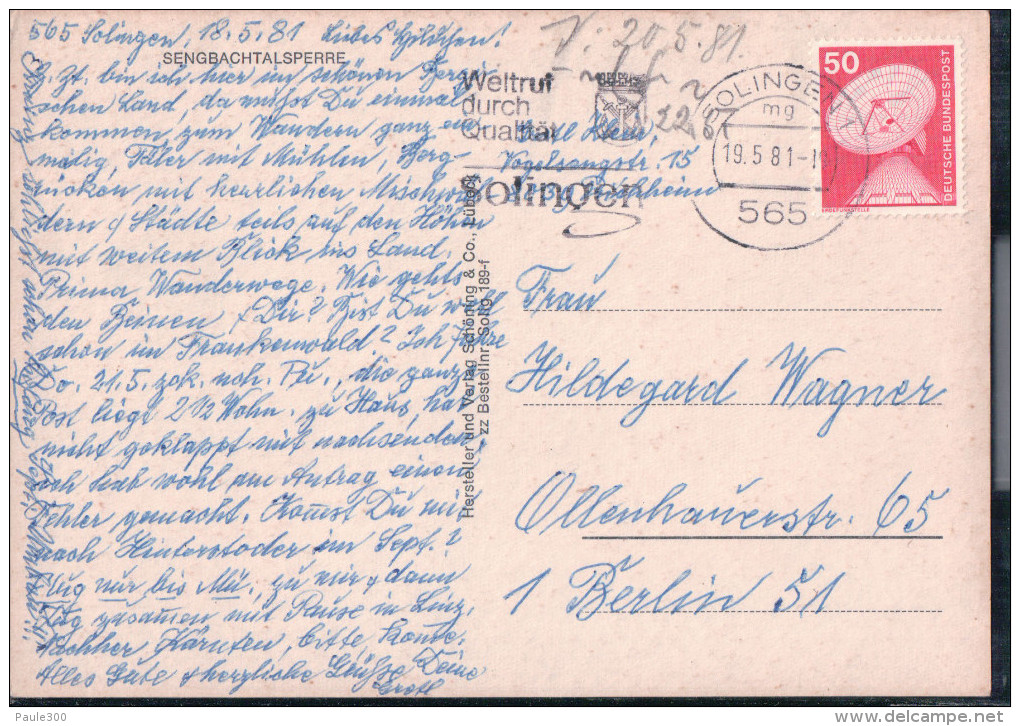 565 Solingen, 18.5.81 Liebes Hildchen!
SENGBACHTALSPERRE
z. Zt. bin ich hier im schönen Bergi-
schen Land, da mußt Du einmal
kommen, zum Wandern ganz
Täler mit Mühlen, Berg-
rücken mit herrlichen Mischwäl-
dern & Städte teils auf den Höhen
mit weitem Blick ins Land.
Prima Wanderwege. Wie gehts
den Beinen & Dir? Bist Du wohl
schon im Frankenwald? Ich fahre
Do. 21.5. zck. nch. die ganze
Post liegt 2 1/2 Wohn. zu Haus, hat
nicht geklappt mit nachsenden,
ich hab wohl am Antrag einen
Fehler gemacht. Kommst Du mit
nach Hinterstoder im Sept.?
Flug nur bis Mü., zu mir & dann
Ztg zusammen mit Pause in Linz.
Nachher Kärnten, bitte, komme.
Alles Gute & herzliche Grüsse Deine
Gretl
V: 20.5.81.
22
Weltruf
durch
Qualität
Solingen
Vogelsangstr. 15
SOLINGEN 1
mg
19.5.81-1
565
50
DEUTSCHE BUNDESPOST
ERDEFUNKSTELLE
Hersteller und Verlag Schöning & Co., Lübeck
zz Bestellnr. Solig 189-f
Frau
Hildegard Wagner
Ollenhauerstr. 65
1 Berlin 51
Paule300
delcampe.net